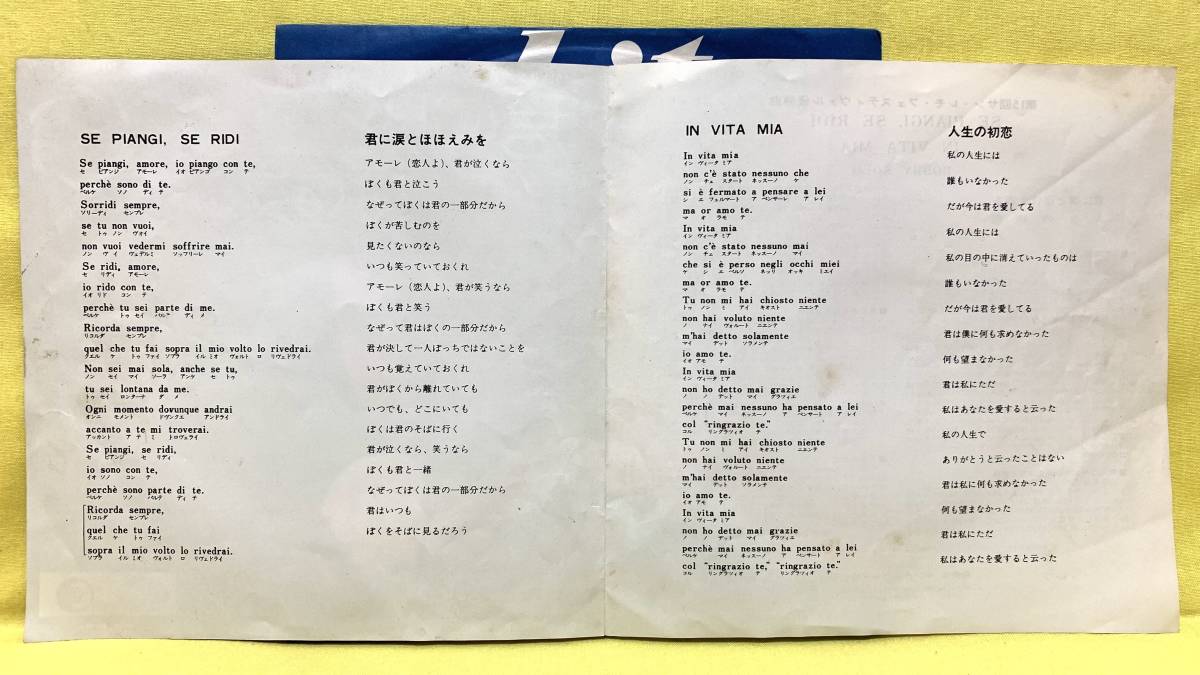 SE PIANGI, SE RIDI
君に涙とほほえみを
Se piangi, amore, io piango con te,
セ ピアンジ アモーレ イオ ピアンゴ コン テ
perchè sono di te.
ペルケ ソノ ディ テ
Sorridi sempre,
ソリーディ センプレ
se tu non vuoi,
セ トゥ ノン ヴォイ
non vuoi vedermi soffrire mai.
ノン ヴィ ヴェデルミ ソッフリーレ マイ
Se ridi, amore,
セ リディ アモーレ
io rido con te,
イオ リド コン テ
perchè tu sei parte di me.
ペルケ トゥ セイ パルテ ディ メ
Ricorda sempre,
リコルダ センプレ
quel che tu fai sopra il mio volto lo rivedrai.
クエル ケ トゥ ファイ ソプラ イル ミオ ヴォルト ロ リヴェドライ
Non sei mai sola, anche se tu,
ノン セイ マイ ソーラ アンケ セ トゥ
tu sei lontana da me.
トゥ セイ ロンターナ ダ メ
Ogni momento dovunque andrai
オンニ モメント ドヴンクエ アンドライ
accanto a te mi troverai.
アッカント ア テ ミ トロヴェライ
Se piangi, se ridi,
セ ピアンジ セ リディ
io sono con te,
イオ ソノ コン テ
perchè sono parte di te.
ペルケ ソノ パルテ ディ テ
Ricorda sempre,
リコルダ センプレ
quel che tu fai
クエル ケ トゥ ファイ
sopra il mio volto lo rivedrai.
ソプラ イル ミオ ヴォルト ロ リヴェドライ
アモーレ(恋人よ)、君が泣くなら
ぼくも君と泣こう
なぜってぼくは君の一部分だから
ぼくが苦しむのを
見たくないのなら
いつも笑っていておくれ
アモーレ(恋人よ)、君が笑うなら
ぼくも君と笑う
なぜって君はぼくの一部分だから
君が決して一人ぼっちではないことを
いつも覚えていておくれ
君がぼくから離れていても
いつでも、どこにいても
ぼくは君のそばに行く
君が泣くなら、笑うなら
ぼくも君と一緒
なぜってぼくは君の一部分だから
君はいつも
ぼくをそばに見るだろう
IN VITA MIA
人生の初恋
In vita mia
イン ヴィータ ミア
non c'è stato nessuno che
ノン チェ スタート ネッスーノ ケ
si è fermato a pensare a lei
シ エ フェルマート ア ペンサーレ ア レイ
ma or amo te.
マ オ ラモ テ
In vita mia
イン ヴィータ ミア
non c'è stato nessuno mai
ノン チェ スタート ネッスーノ マイ
che si è perso negli occhi miei
ケ シ エ ペルソ ネッリ オッキ ミエイ
ma or amo te.
マ オ ラモ テ
Tu non mi hai chiosto niente
トゥ ノン ミ アイ キオスト ニエンテ
non hai voluto niente
ノ ナイ ヴォルート ニエンテ
m'hai detto solamente
マイ デット ソラメンテ
io amo te.
イオ アモ テ
In vita mia
イン ヴィータ ミア
non ho detto mai grazie
ノ ノ デット マイ グラツィエ
perchè mai nessuno ha pensato a lei
ペルケ マイ ネッスーノ ア ペンサート ア レイ
col "ringrazio te."
コル リングラツィオ テ
Tu non mi hai chiosto niente
トゥ ノン ミ アイ キオスト ニエンテ
non hai voluto niente
ノ ナイ ヴォルート ニエンテ
m'hai detto solamente
マイ デット ソラメンテ
io amo te.
イオ アモ テ
In vita mia
イン ヴィータ ミア
non ho detto mai grazie
ノ ノ デット マイ グラツィエ
perchè mai nessuno ha pensato a lei
ペルケ マイ ネッスーノ ア ペンサート ア レイ
col "ringrazio te," "ringrazio te."
コル リングラツィオ テ リングラツィオ テ
私の人生には
誰もいなかった
だが今は君を愛してる
私の人生には
私の目の中に消えていったものは
誰もいなかった
だが今は君を愛してる
君は僕に何も求めなかった
何も望まなかった
君は私にただ
私はあなたを愛すると云った
私の人生で
ありがとうと云ったことはない
君は私に何も求めなかった
何も望まなかった
君は私にただ
私はあなたを愛すると云った